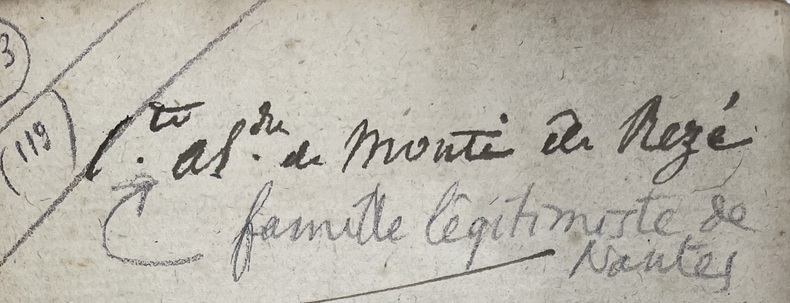 3
119
C.te Al.dre de Monti de Rezé
famille légitimiste de
Nantes